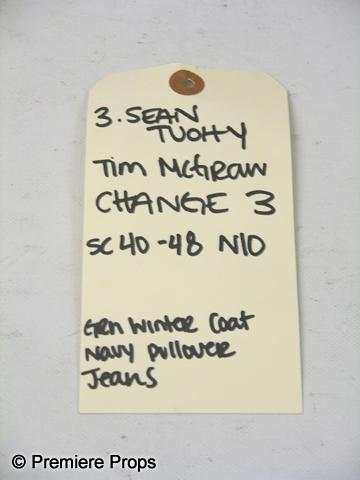 3. SEAN
TUOHY
Tim McGraw
CHANGE 3
SC 40-48 N10
GRN WINTER COAT
NAVY PULLOVER
JEANS
© Premiere Props